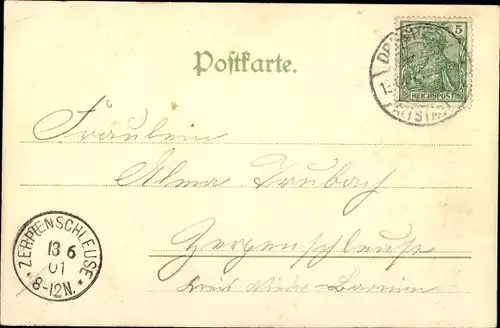 Postkarte.
5 5
REICHSPOST
ALTSTADT
Fräulein
Alma Trubach
Zerpenschleuse
Kreis Nieder-Barnim
ZERPENSCHLEUSE
13 6
01
8-12N.